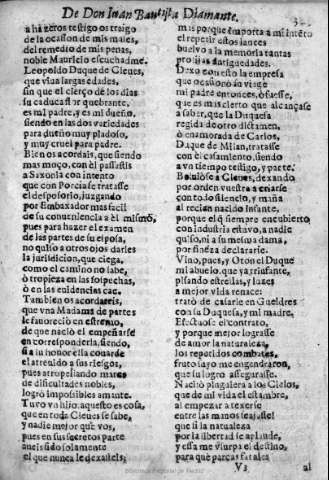 De Don Iuan Bautista Diamante.
a hazeros testigo os traigo
de la ocasion de mis males,
del remedio de mis penas,
noble Mauricio escuchadme.
Leopoldo Duque de Cleues,
que viua largas edades,
sin que el cierço de los dias
su caduca flor quebrante,
es mi padre, y es mi dueño,
siendo en las dos variedades
para dueño muy piadoso,
y muy cruel para padre.
Bien os acordais, que siendo
mas moço, con él passasteis
a Saxonia con intento
que con Porcia se tratasse
el desposorio, juzgando
por Embaxador mas facil
de su conueniencia a él mismo,
pues para hazer el examen
de las partes de su esposa,
no quiso a otros ojos darles
la jurisdicion, que ciega,
como el camino no sabe,
ò tropieza en las sospechas,
ò en las euidencias cae.
Tambien os acordareis,
que vna Madama de partes
le fauoreciò en estremo,
de que naciò el empeñarse
en corresponderla, siendo,
si a su honor ella couarde
el atreuido a sus riesgos,
pues atropellando mares
de dificultades nobles,
logrò impossibles amante.
Tuvo vn hijo, aquesto es cosa,
que en toda Cleues se sabe,
y nadie mejor que vos,
pues en sus secretos parte
aueis sido solamente
el que nunca le dexasteis;
mis porque importa a mi intento
el repetir estos lances
buelvo a la memoria tantas
prolijas antiguedades.
Dexo con esto la empresa
que ocasionò an viage
mi padre entonces, ò fuesse,
que es mas cierto que alcançasse
a saber, que la Duquesa
regida de otro dictamen,
ò enamorada de Carlos,
Duque de Milan, tratasse
con el casamiento, siendo
a vn tiempo testigo, y parte.
Boluiòse a Cleues, dexando
por orden vuestra a criarse
con todo silencio, y maña
al recien nacido Infante,
porque el q siempre encubierto
con industria estavo, a nadie
quiso, ni a su mesma dama,
por fineza declararse.
Vino, pues, y Oton el Duque
mi abuelo, que ya triunfante,
pisando estrellas, y luzes
a mejor vida renace:
tratò de casarle en Gueldres
con la Duquesa, y mi madre.
Efectuòse el contrato,
y porque mejor lograsse
de amor la naturaleza,
los repetidos combates,
fruto suyo me engendraron,
que su logro assegurasse.
Naciò plugaiera a los Cielos,
que de mi vida el estambre,
al empezar a texerse
entre las manos se ajasse!
que si la naturaleza
por la libertad se aplaude,
y essa me viurpa el destino,
para què parças fatales
V3 al
Biblioteca Regional de Madrid